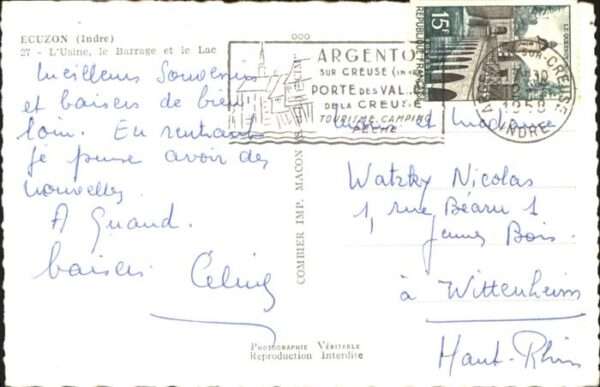 ECUZON (Indre)
27 - L'Usine, le Barrage et le Lac
Meilleurs Souvenirs
et baisers de bien
loin. En rentrant
je pense avoir des
nouvelles.
A Quand.
baisers
COMBIER IMP. MACON
ARGENTO
SUR CREUSE (INDRE)
PORTE DES VAL
DE LA CREUSE
TOURISME-CAMPING
PÊCHE
15F
REPUBLIQUE FRANÇAISE
LE QUESNOY
SUR-CREUSE
1958
INDRE
et Madame
Watzky Nicolas
1, rue Béarn 1
Jeunes Bois
à Wittenheim
Haut-Rhin
PHOTOGRAPHIE VÉRITABLE
Reproduction Interdite